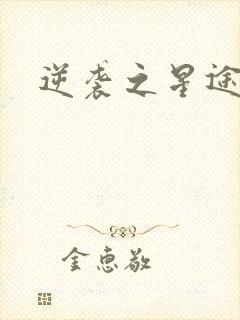 逆袭之星途
金惠敬